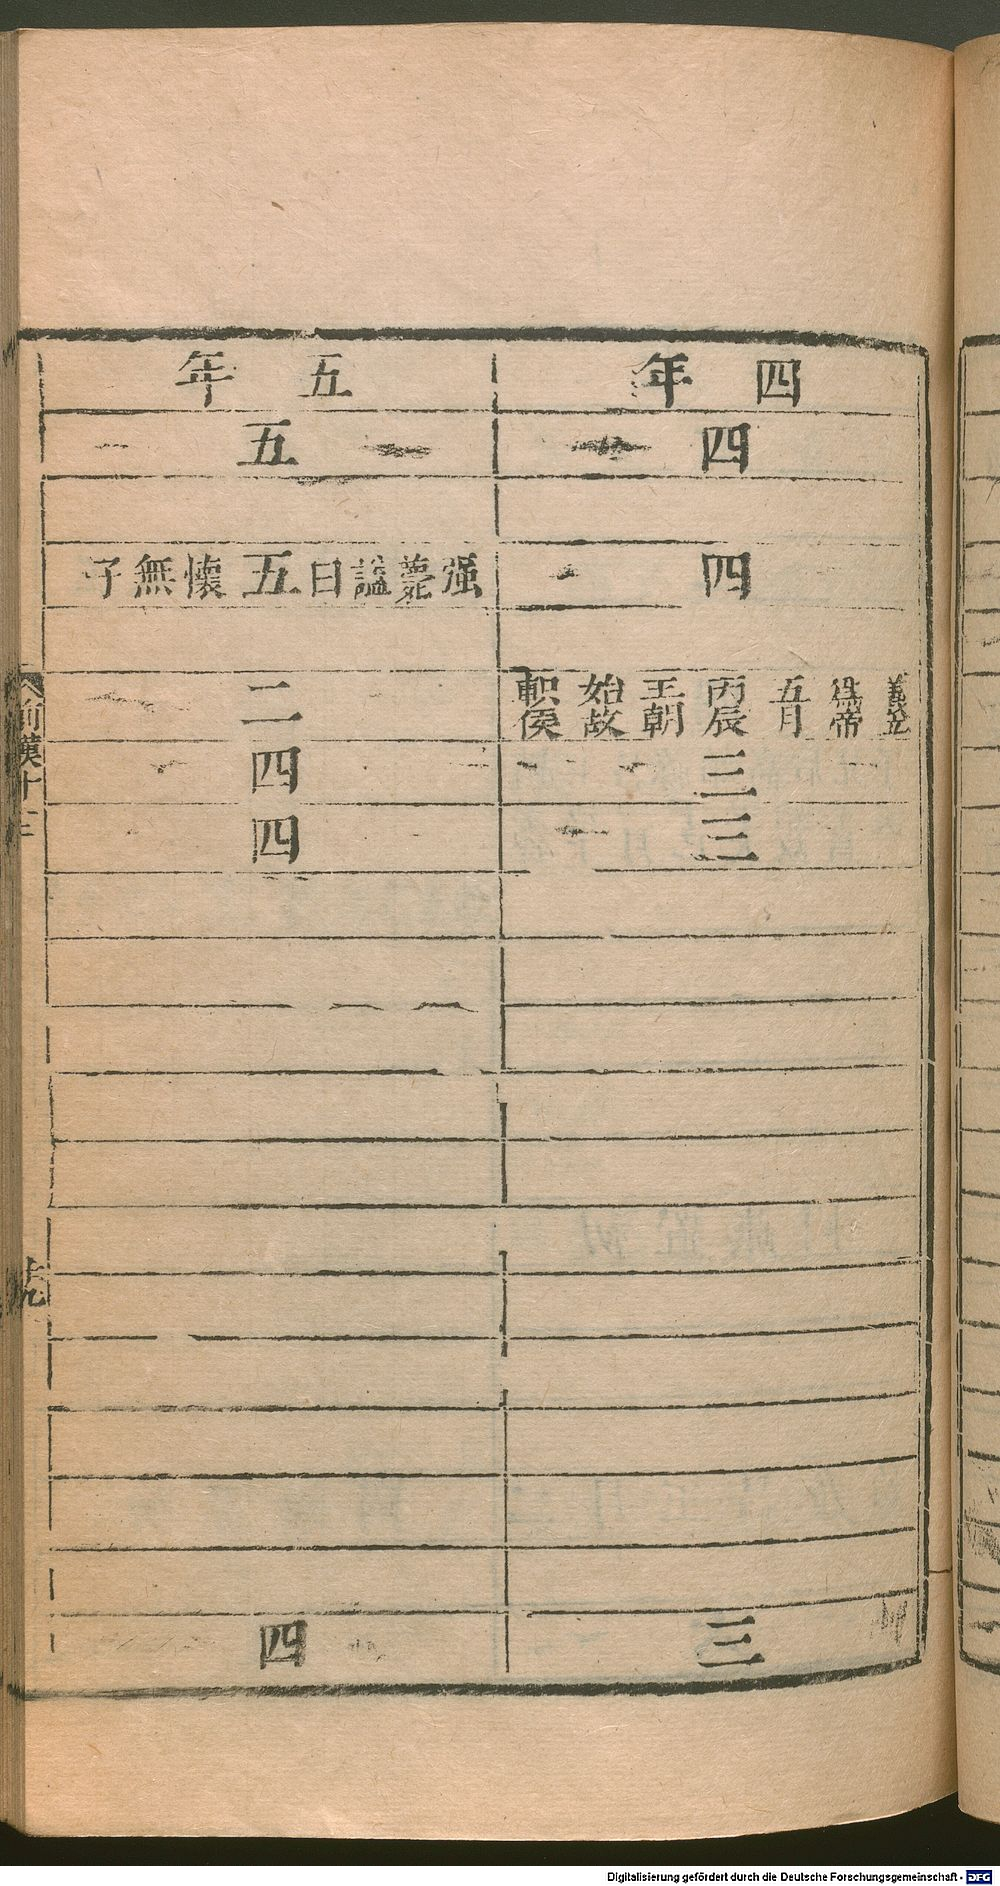 四年
四
四
義立為帝五月丙辰王朝始故軹侯
三
三
三
五年
五
强薨謚曰五懷無子
二
四
四
四
前漢十三
Digitalisierung gefördert durch die Deutsche Forschungsgemeinschaft - DFG